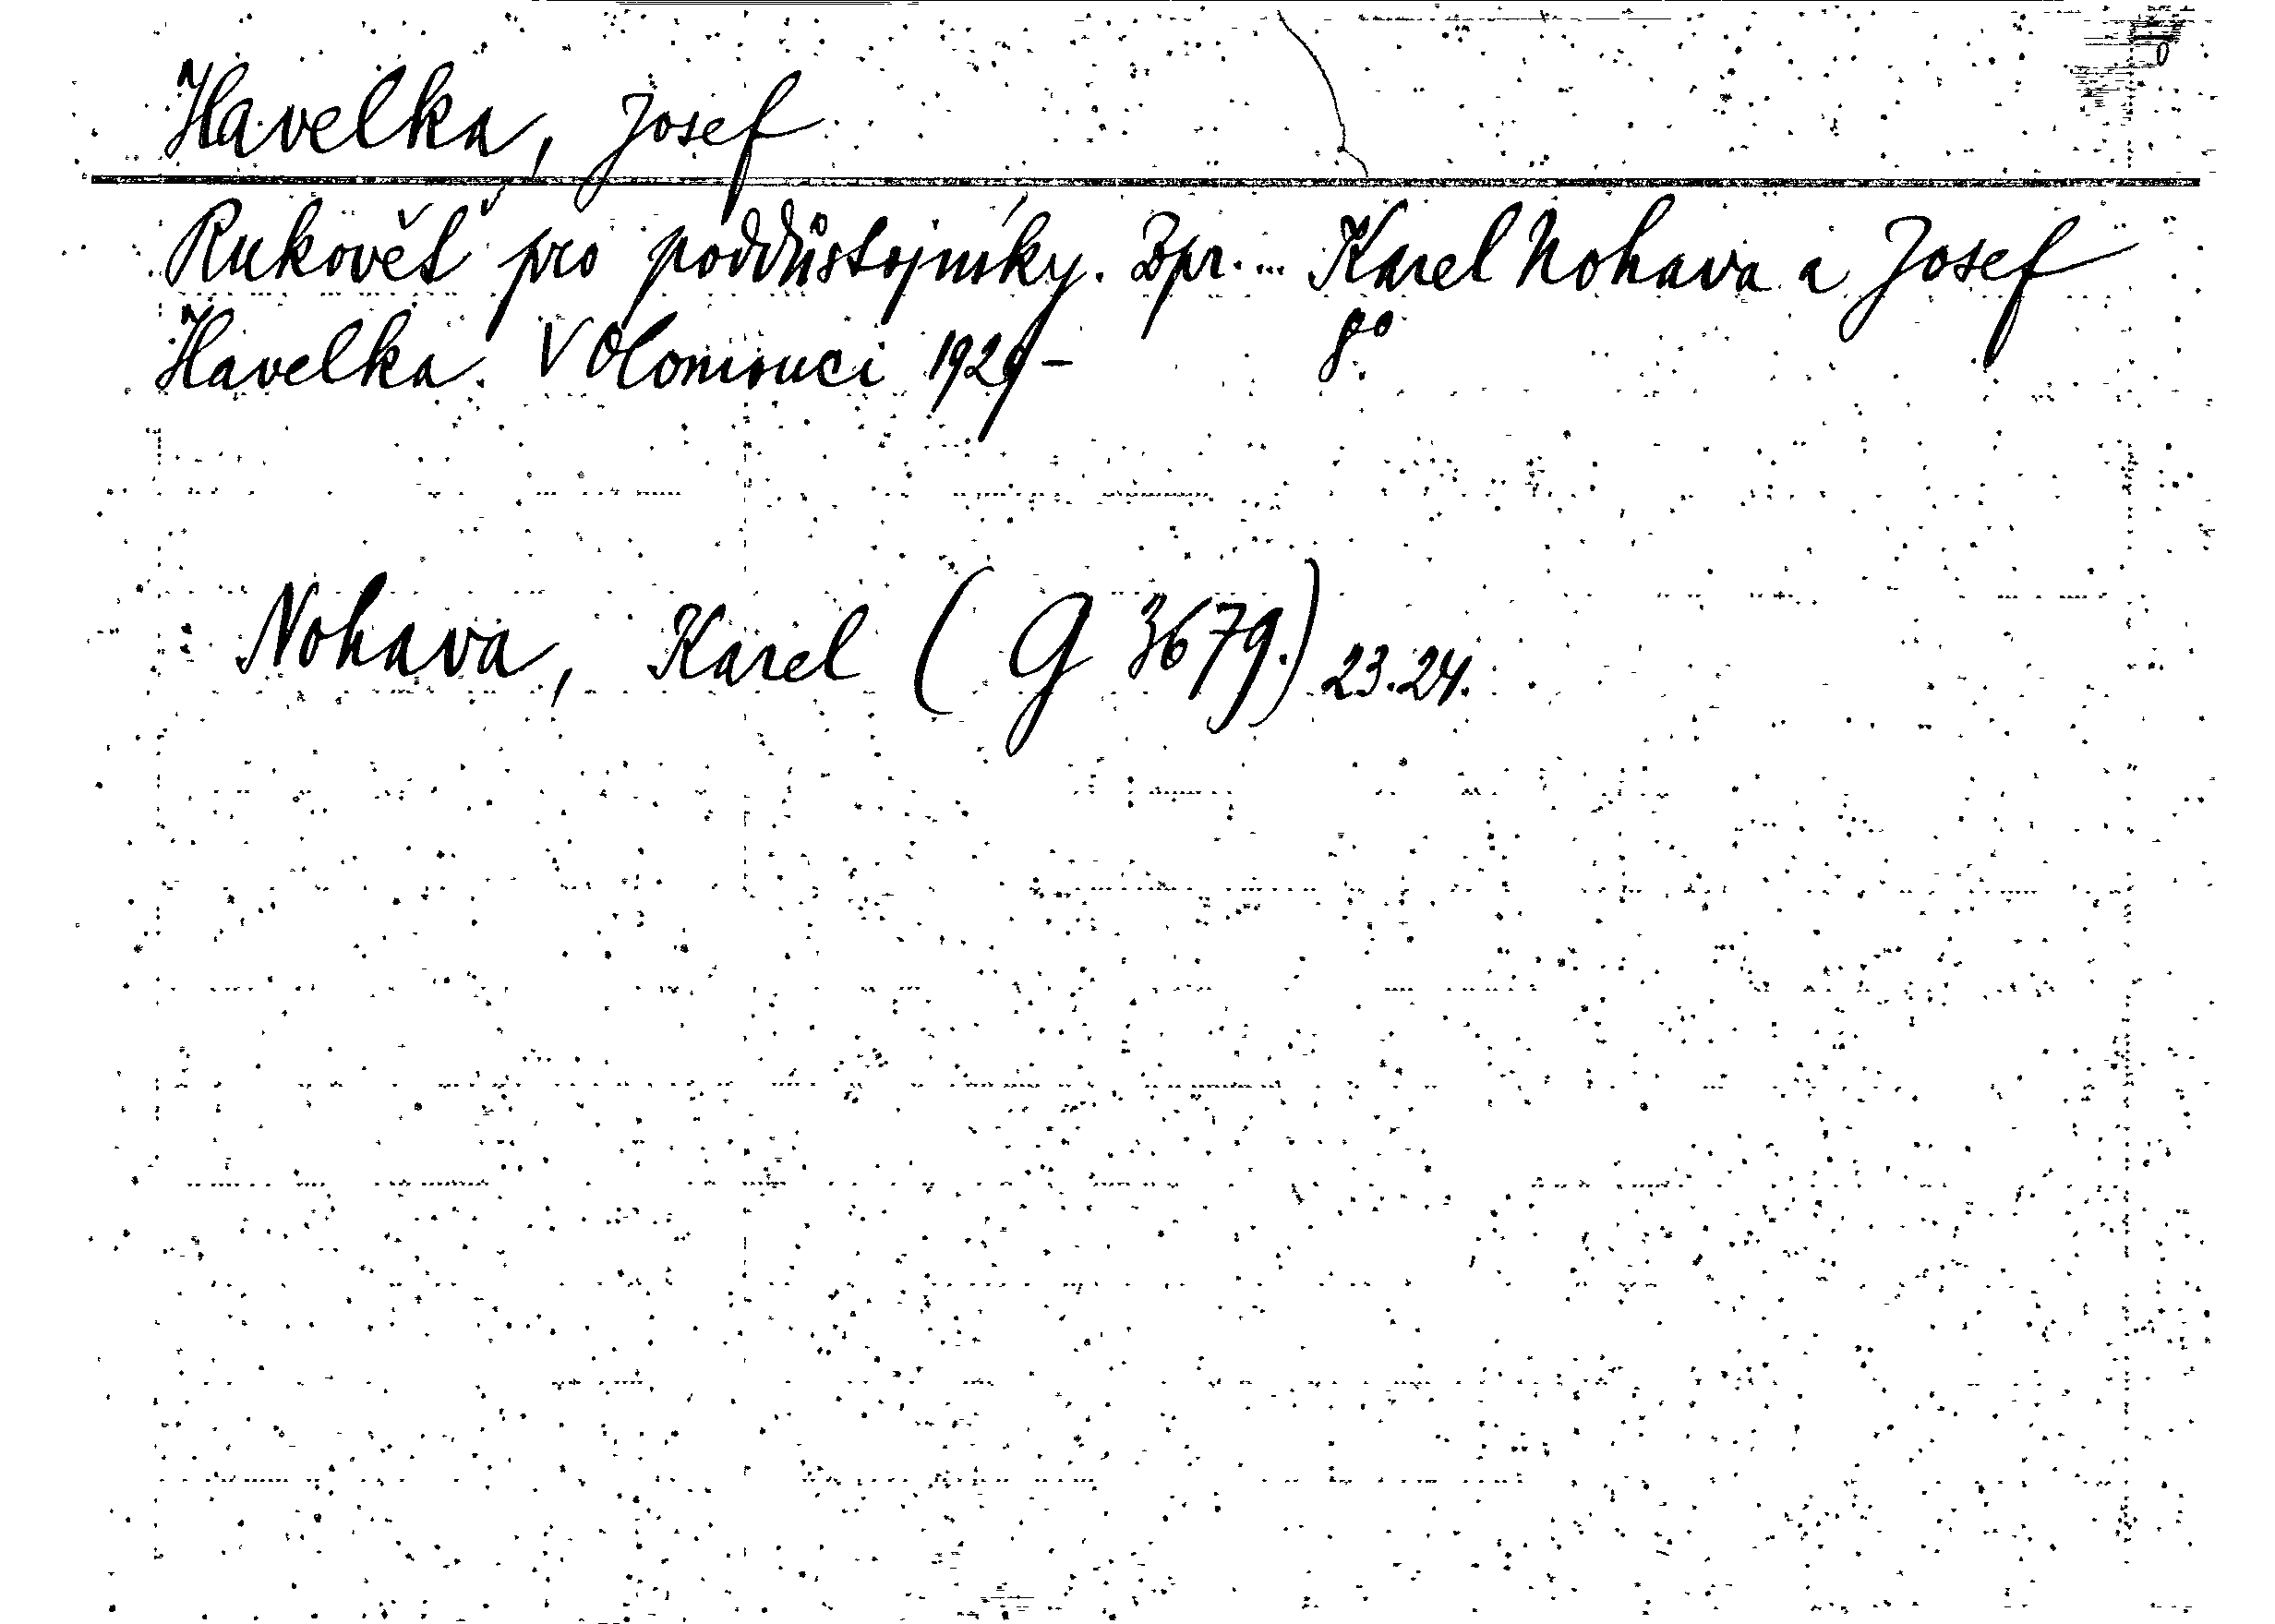 Havelka, Josef
Rukověť pro poddůstojníky. Zpr. ... Karel Nohava a Josef
Havelka. V Olomouci 1929 - 8º.
Nohava, Karel (G 3679.) 23.24.